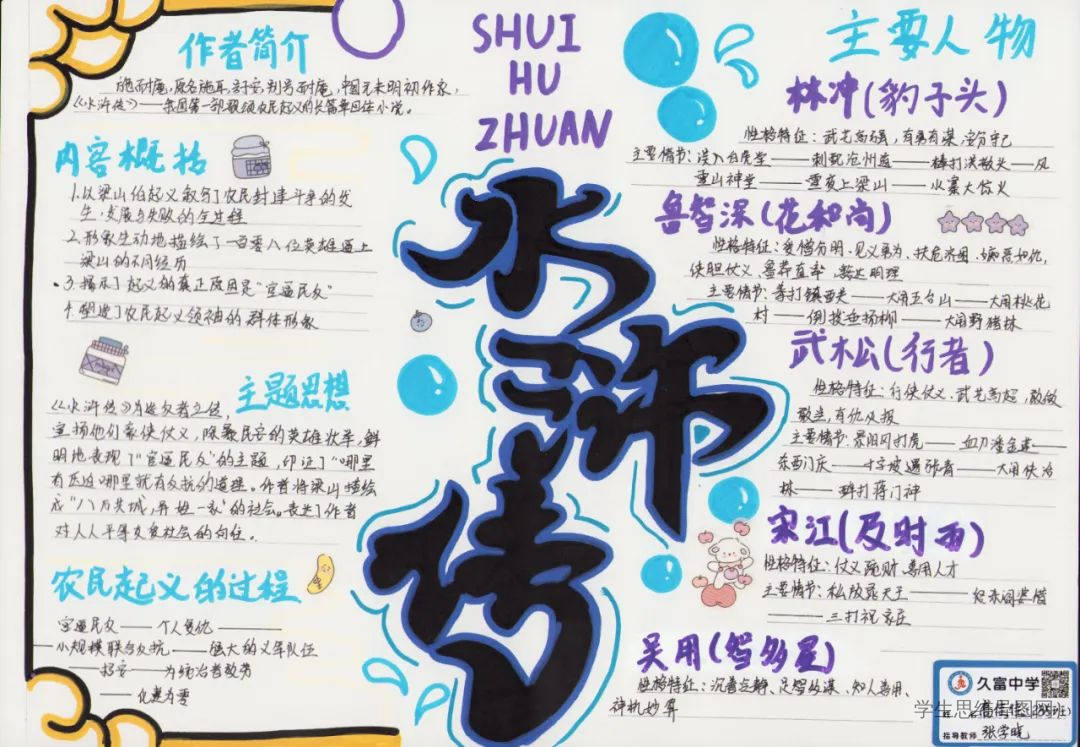 作者简介
施耐庵,原名施耳,
中国元末明初作家,
《水浒传》——
第一部歌颂农民起义的长篇章回体小说。
内容概括
1.以梁山伯起义叙写了农民封建斗争的发
生,发展与失败的全过程
2.形象生动地描绘了一百零八位英雄逼上
梁山的不同经历
3.揭示了起义的真正原因是“官逼民反”
4.塑造了农民起义领袖的群体形象
主题思想
《水浒传》为造反者立传,
宣扬他们豪侠仗义,除暴民安的英雄壮举,鲜
明地表现了“官逼民反”的主题,印证了“哪里
有压迫哪里就有反抗的道理。作者将梁山描绘
成“八方共域,异姓一家”的社会。表达了作者
对人人平等友爱社会的向往。
农民起义的过程
官逼民反——个人复仇——
小规模联合反抗——强大的义军队伍
——招安——为统治者效劳
——化票为零
SHUI
HU
ZHUAN
水浒传
主要人物
林冲(豹子头)
性格特征:武艺高强,有勇有谋,安分守己
主要情节:误入白虎堂——刺配沧州道——棒打洪教头——风
雪山神堂——雪夜上梁山——水寨大惊火
鲁智深(花和尚)
性格特征:爱憎分明、见义勇为、扶危济困、嫉恶如仇,
侠胆仗义、鲁莽直率、豁达明理
主要情节:拳打镇西关——大闹五台山——大闹桃花
村——倒拔垂杨柳——大闹野猪林
武松(行者)
性格特征:行侠仗义、武艺高超,敢做
敢当,有仇必报
主要情节:景阳冈打虎——血刀潘金莲——
东西门庆——十字坡遇张青——大闹快活
林——醉打蒋门神
宋江(及时雨)
性格特征:仗义疏财、善用人才
主要情节:私放晁天王——
——三打祝家庄
吴用(智多星)
性格特征:沉着冷静、足智多谋、知人善用、
神机妙算
久富中学
指导教师 张学晓
学生思维导图网